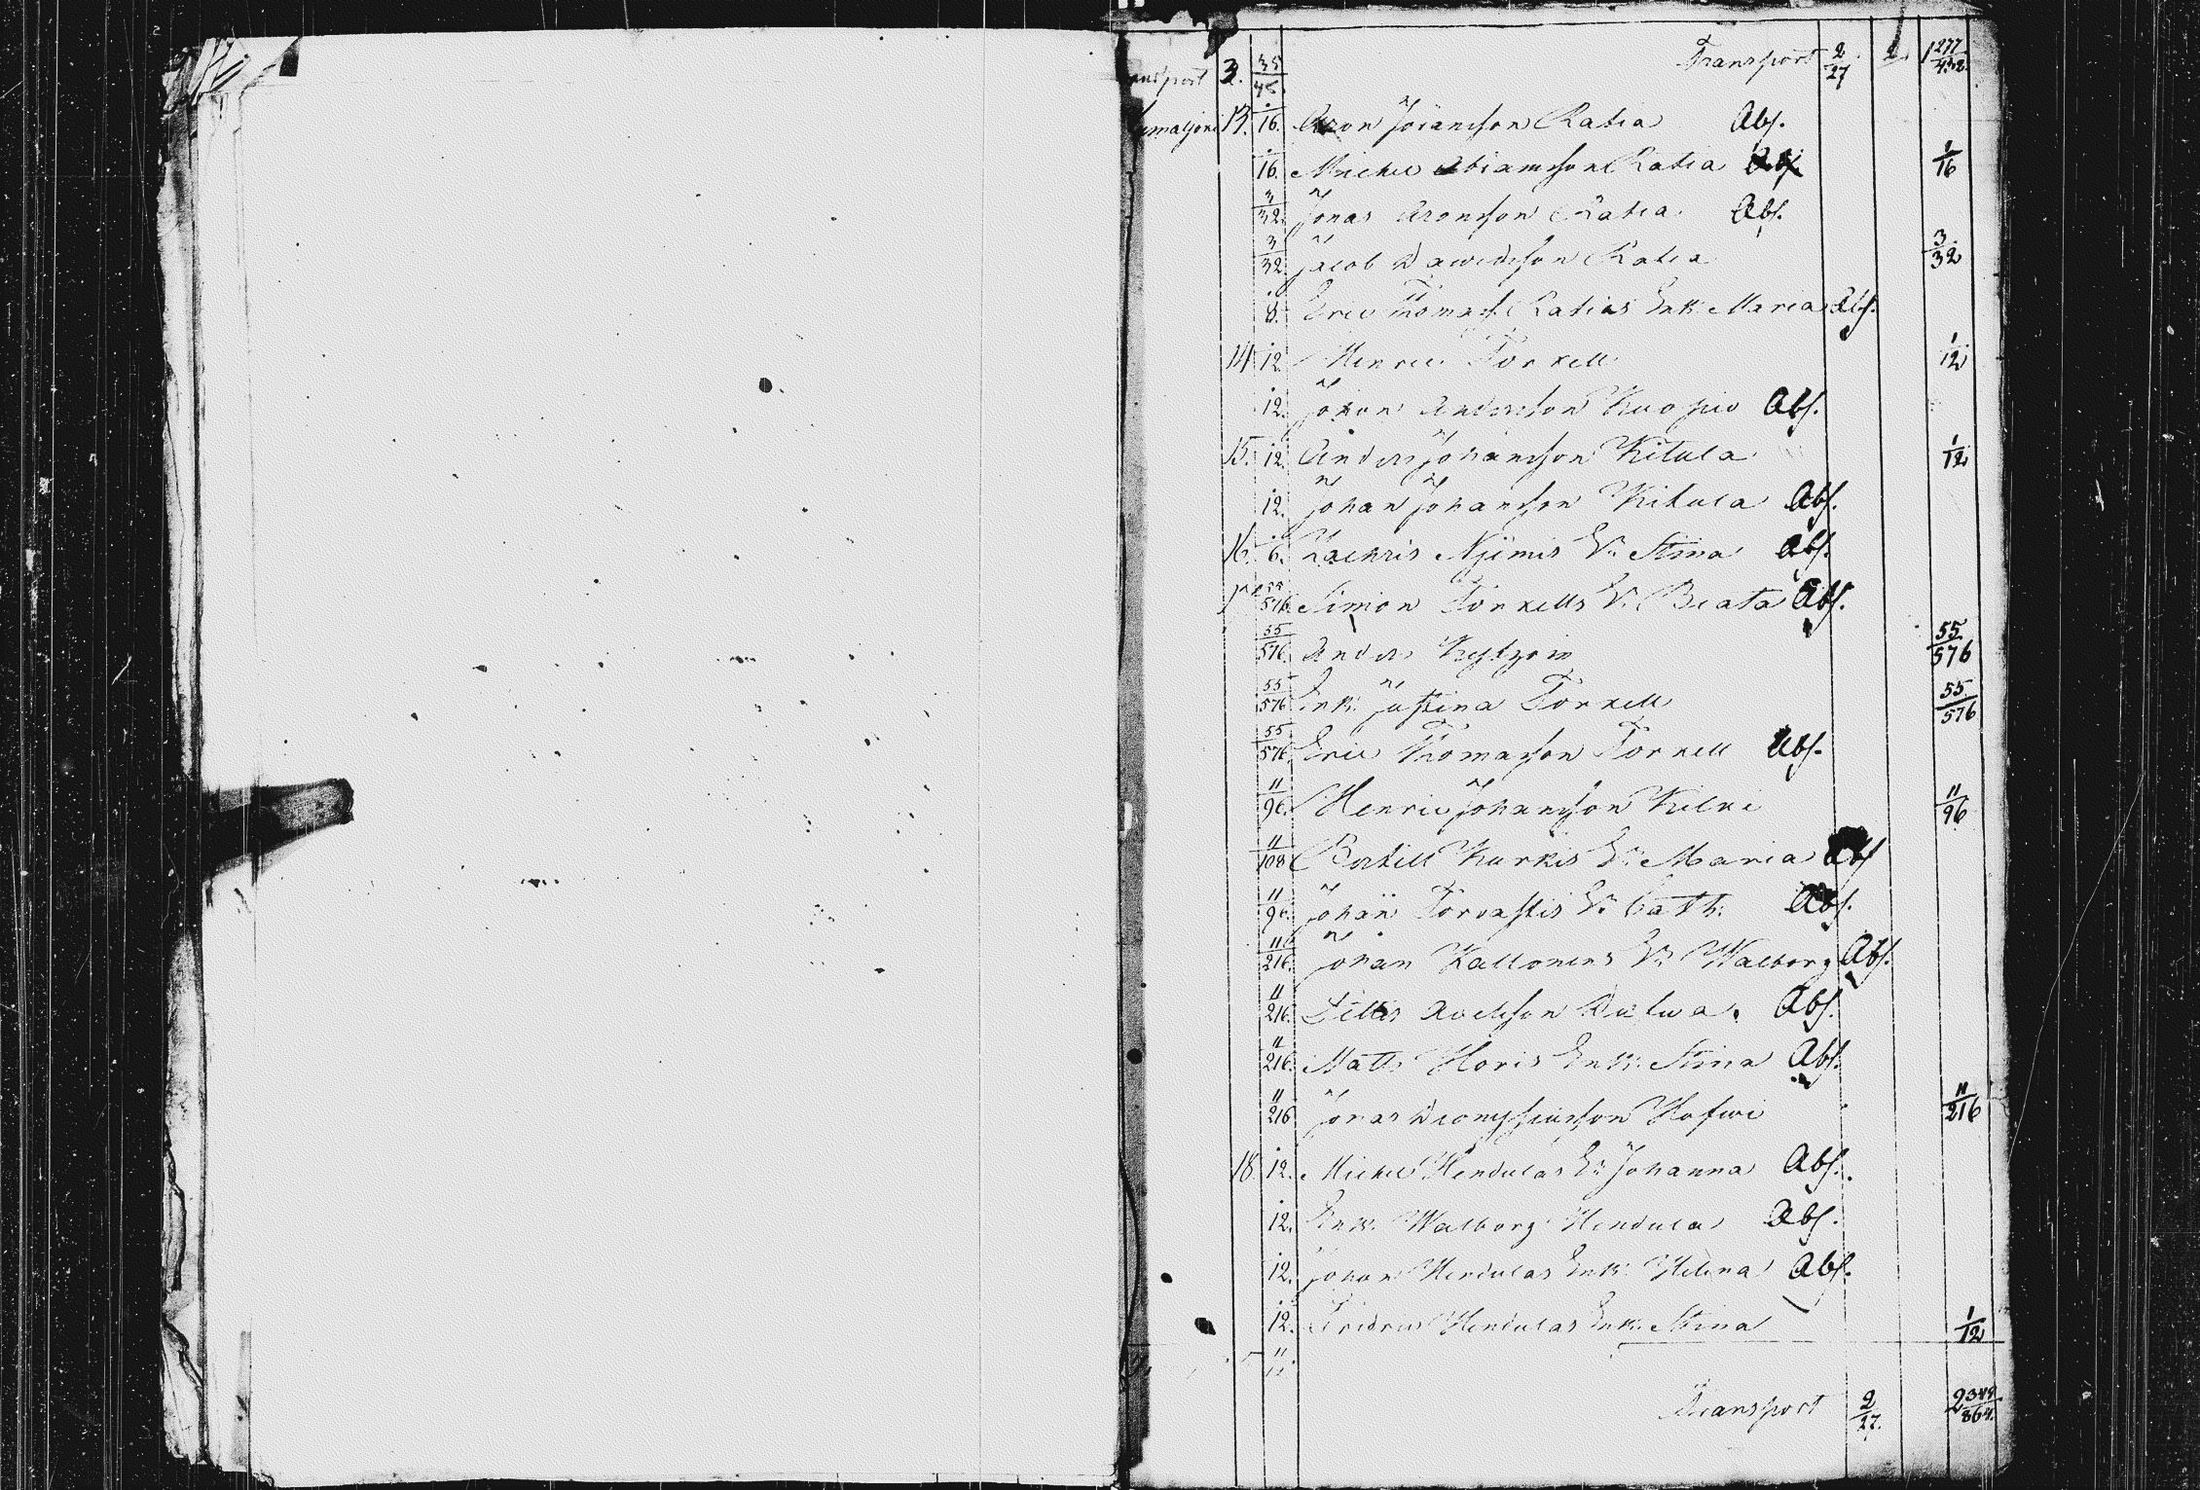 Transport 2/27 1277/432
3. 35/48
13. 1/16. Aron Johansson Ratia Abs.
1/16. Michel Abramsson Ratia Abs 1/16
3/32 Jonas Aronsson Ratia Abs.
3/32 Jacob Davidsson Ratia 3/32
1/8. Eric Thomass. Ratias Enk. Maria Abs.
14 1/12. Henric Torkell 1/12
1/12. Johan Andersson Kuopio Abs.
15. 1/12. Anders Johansson Kitula 1/12
1/12. Johan Johansson Kitula Abs.
16. 1/6. Zachris Njimis E. Stina Abs.
55/576 Simon Torkells E. Beata Abs.
55/576. Anders 55/576
55/576 Enk. Justina Torkell 55/576
55/576 Eric Thomasson Torkell Abs.
11/96. Henric Johansson Kilki 11/96
11/108 Bertill Kurkis E. Maria Abs
11/96. Johan Torvastis E. Cath. Abs.
11/216. Johan Kallonens E. Walborg Abs.
11/216. Abs.
11/216. Matts Horis Enk. Stina Abs.
11/216 Jonas Dionysiusson Hofwi 11/216
18. 1/12. Michel Hendulas E. Johanna Abs.
1/12. Enk. Walborg Hendula Abs.
1/12. Johan Hendulas Enk. Helena Abs.
1/12. Fridric Hendulas Enk. Stina 1/12
Transport 2/27. 2 349/864.